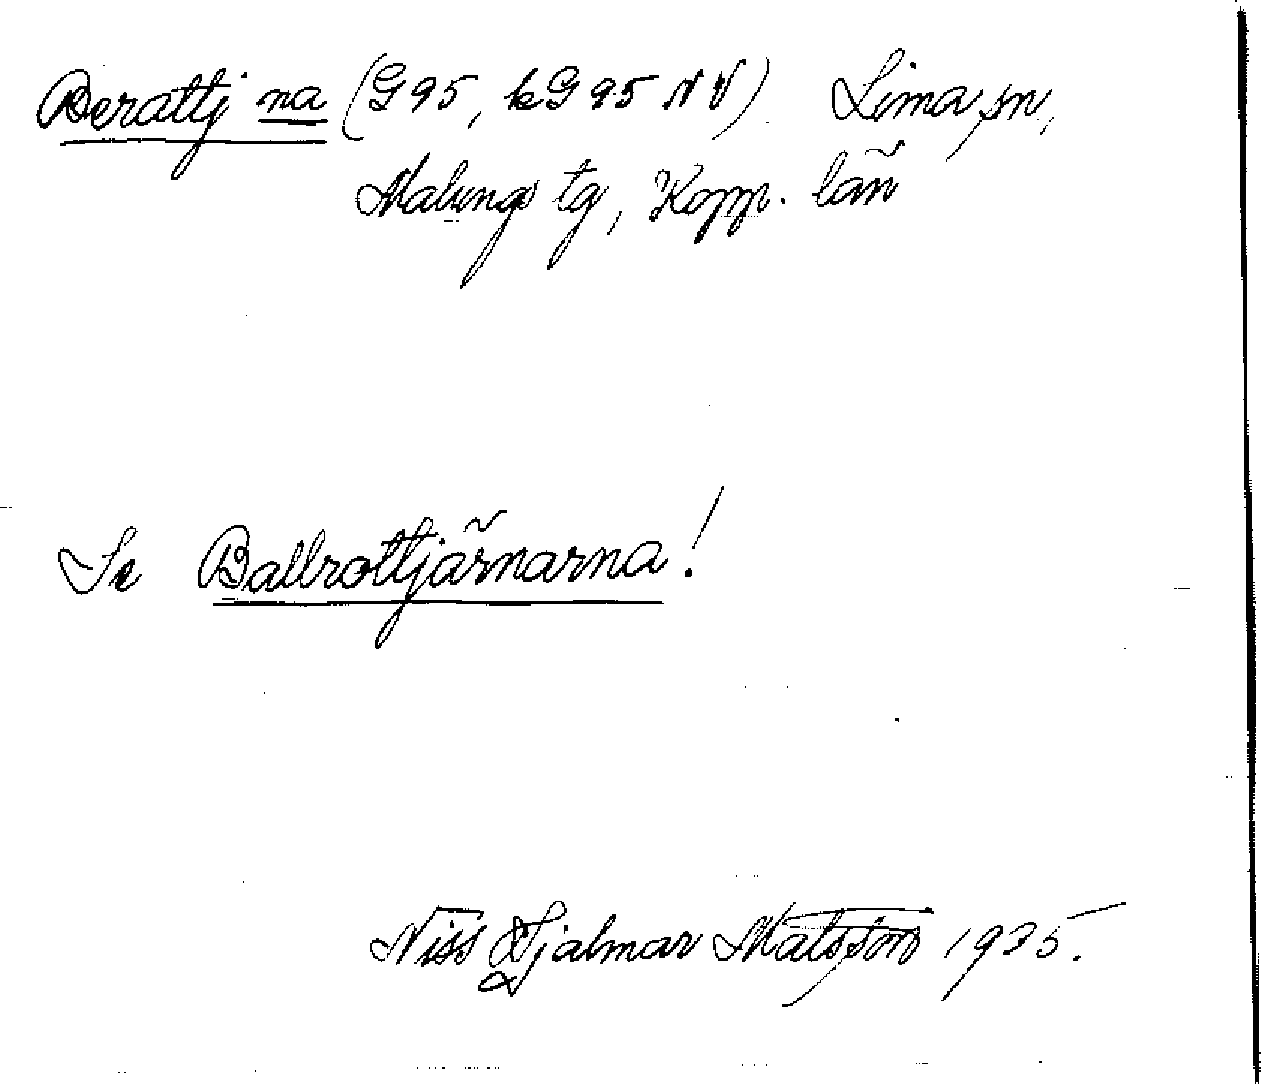 Berattj na (G95, kG95 NV) Lima sn,
Malungs tg, Kopp. län
Se Ballrottjärnarna!
Niss Hjalmar Matsson 1935.